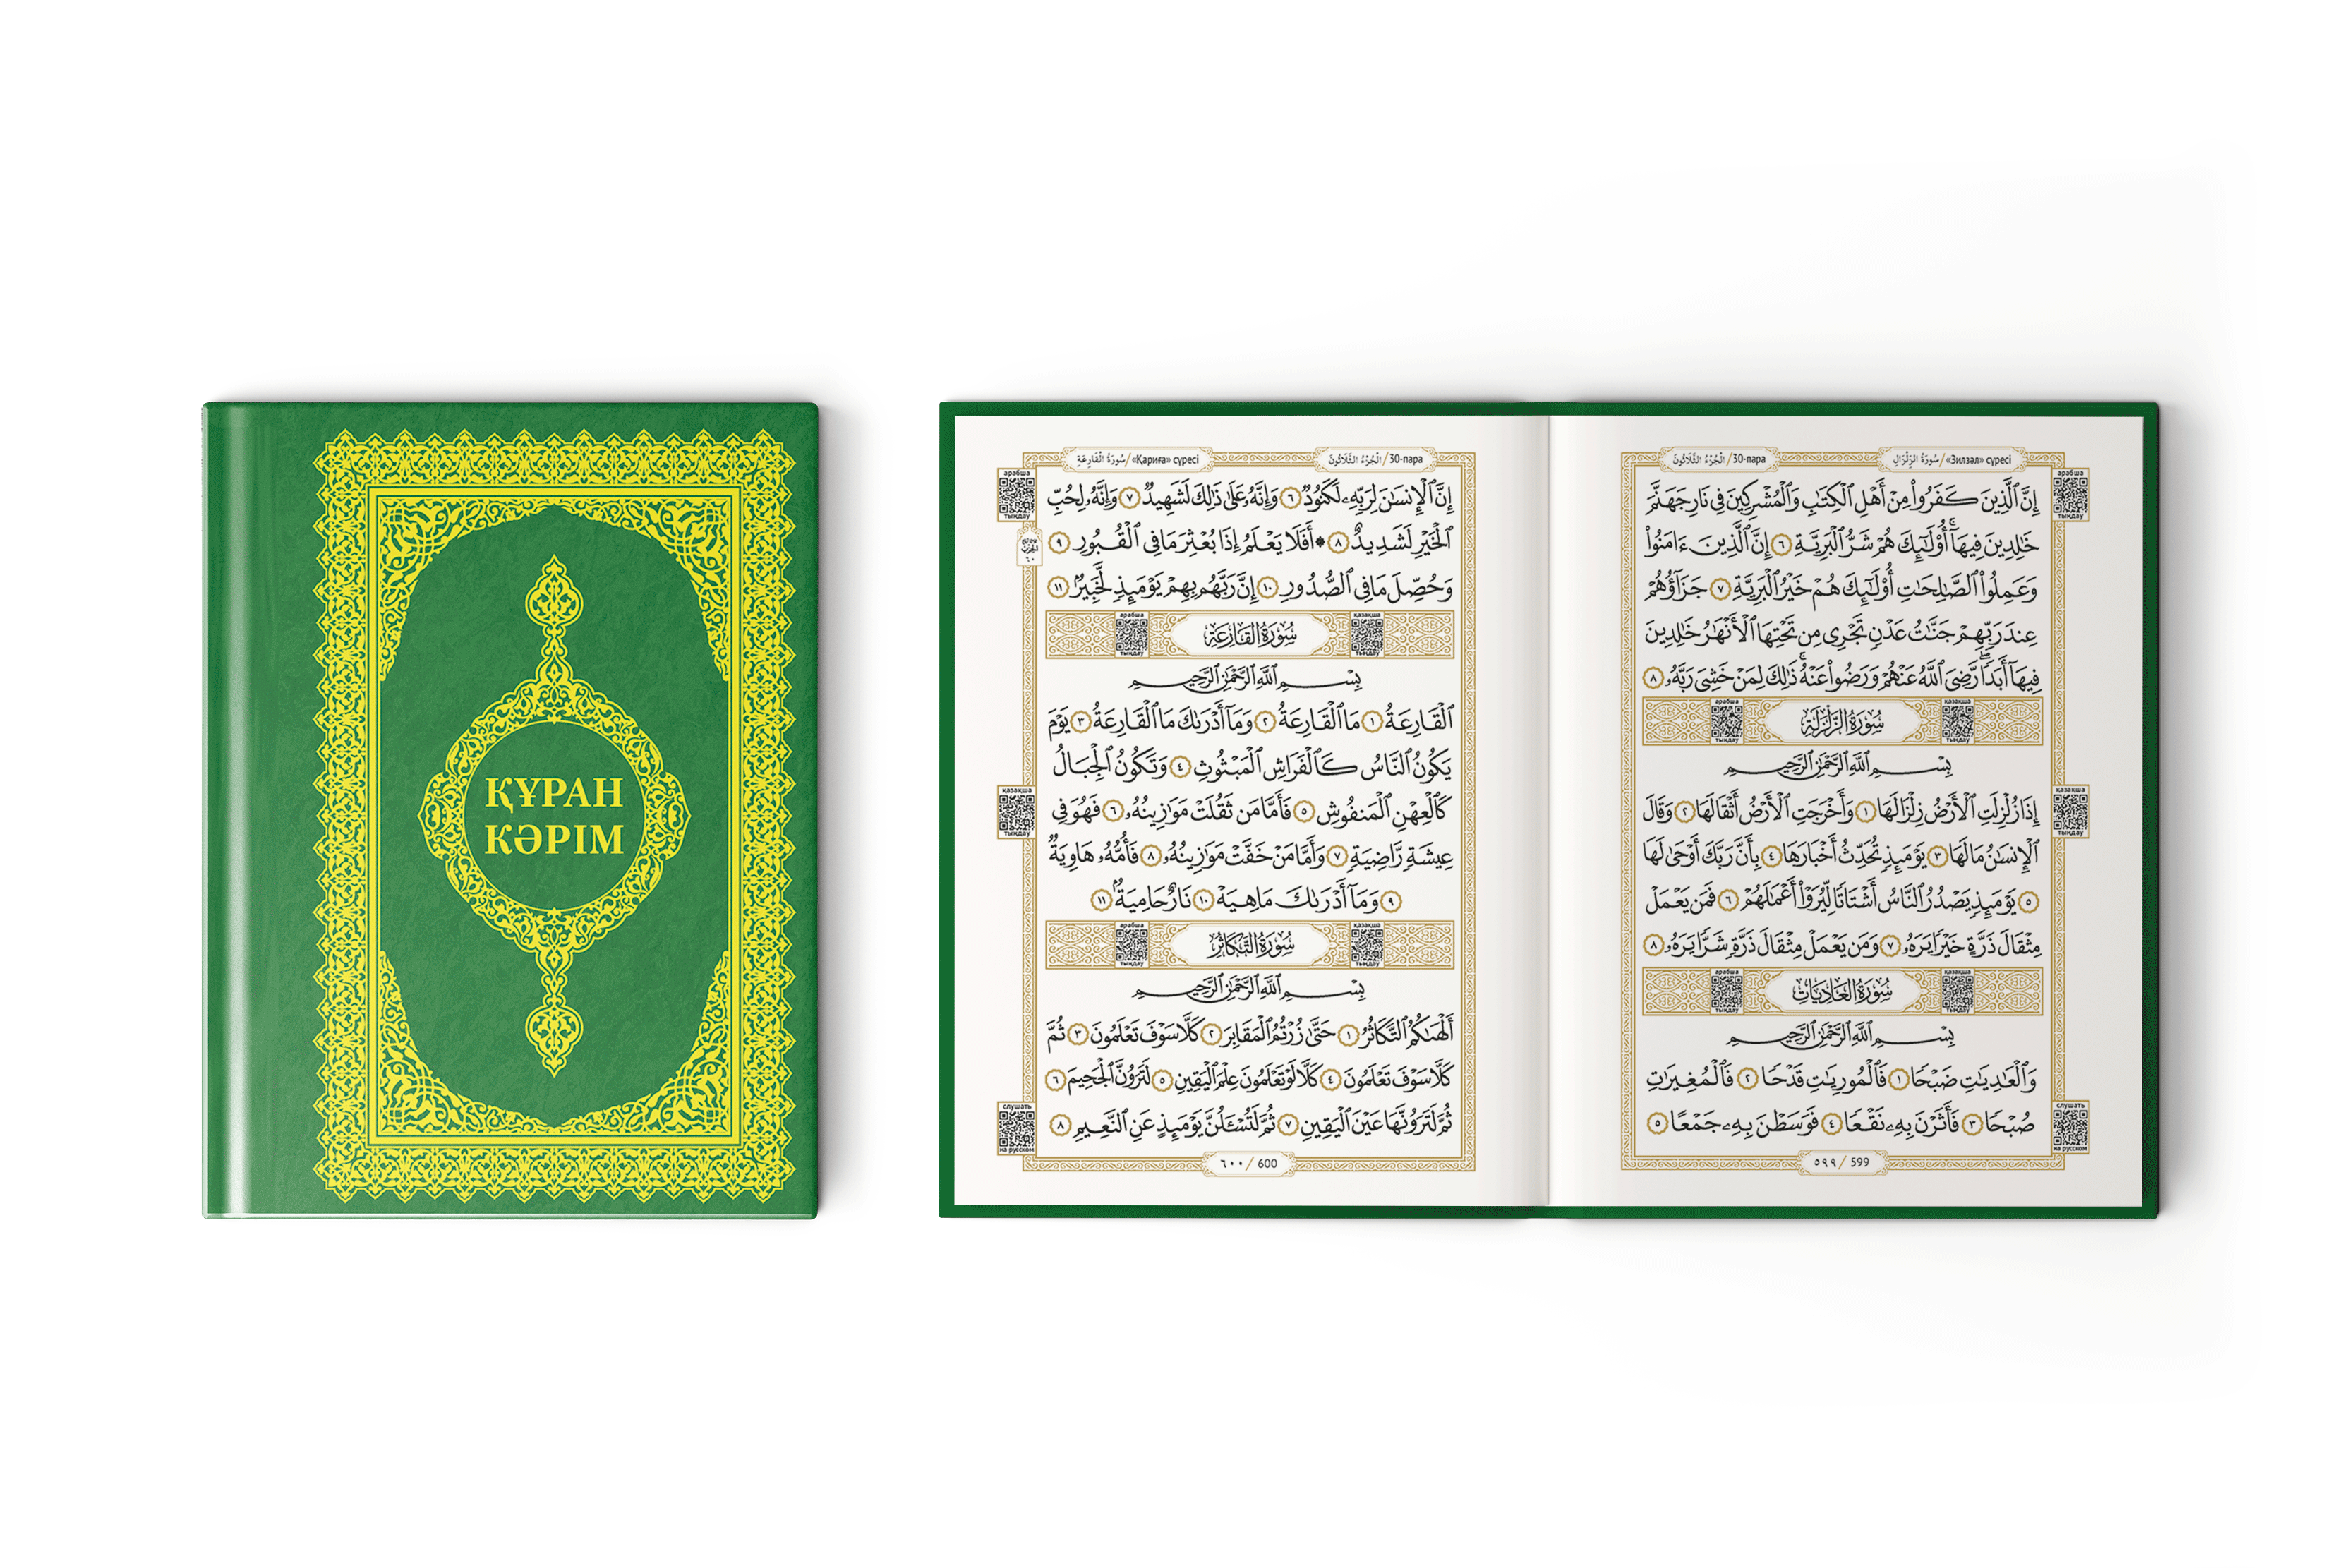 ҚҰРАН
КӘРІМ
الْجُزْءُ الثَّلَاثُونَ / 30-пара
سُورَةُ الزِّلْزَالِ / «Зилзәл» сүресі
арабша
тыңдау
إِنَّ ٱلَّذِينَ كَفَرُوا۟ مِنْ أَهْلِ ٱلْكِتَٰبِ وَٱلْمُشْرِكِينَ فِى نَارِ جَهَنَّمَ
خَٰلِدِينَ فِيهَآ ۚ أُو۟لَٰٓئِكَ هُمْ شَرُّ ٱلْبَرِيَّةِ ٦ إِنَّ ٱلَّذِينَ ءَامَنُوا۟
وَعَمِلُوا۟ ٱلصَّٰلِحَٰتِ أُو۟لَٰٓئِكَ هُمْ خَيْرُ ٱلْبَرِيَّةِ ٧ جَزَآؤُهُمْ
عِندَ رَبِّهِمْ جَنَّٰتُ عَدْنٍ تَجْرِى مِن تَحْتِهَا ٱلْأَنْهَٰرُ خَٰلِدِينَ
فِيهَآ أَبَدًا ۖ رَّضِىَ ٱللَّهُ عَنْهُمْ وَرَضُوا۟ عَنْهُ ۚ ذَٰلِكَ لِمَنْ خَشِىَ رَبَّهُۥ ٨
арабша
тыңдау
سُورَةُ الزَّلْزَلَةِ
қазақша
тыңдау
بِسْمِ ٱللَّهِ ٱلرَّحْمَٰنِ ٱلرَّحِيمِ
إِذَا زُلْزِلَتِ ٱلْأَرْضُ زِلْزَالَهَا ١ وَأَخْرَجَتِ ٱلْأَرْضُ أَثْقَالَهَا ٢ وَقَالَ
ٱلْإِنسَٰنُ مَا لَهَا ٣ يَوْمَئِذٍ تُحَدِّثُ أَخْبَارَهَا ٤ بِأَنَّ رَبَّكَ أَوْحَىٰ لَهَا
٥ يَوْمَئِذٍ يَصْدُرُ ٱلنَّاسُ أَشْتَاتًا لِّيُرَوْا۟ أَعْمَٰلَهُمْ ٦ فَمَن يَعْمَلْ
مِثْقَالَ ذَرَّةٍ خَيْرًا يَرَهُۥ ٧ وَمَن يَعْمَلْ مِثْقَالَ ذَرَّةٍ شَرًّا يَرَهُۥ ٨
қазақша
тыңдау
арабша
тыңдау
سُورَةُ العَادِيَاتِ
қазақша
тыңдау
بِسْمِ ٱللَّهِ ٱلرَّحْمَٰنِ ٱلرَّحِيمِ
وَٱلْعَٰدِيَٰتِ ضَبْحًا ١ فَٱلْمُورِيَٰتِ قَدْحًا ٢ فَٱلْمُغِيرَٰتِ
صُبْحًا ٣ فَأَثَرْنَ بِهِۦ نَقْعًا ٤ فَوَسَطْنَ بِهِۦ جَمْعًا ٥
слушать
на русском
٥٩٩ / 599
سُورَةُ الْقَارِعَةِ / «Қариға» сүресі
الْجُزْءُ الثَّلَاثُونَ / 30-пара
арабша
тыңдау
إِنَّ ٱلْإِنسَٰنَ لِرَبِّهِۦ لَكَنُودٌ ٦ وَإِنَّهُۥ عَلَىٰ ذَٰلِكَ لَشَهِيدٌ ٧ وَإِنَّهُۥ لِحُبِّ
ٱلْخَيْرِ لَشَدِيدٌ ٨ ۞ أَفَلَا يَعْلَمُ إِذَا بُعْثِرَ مَا فِى ٱلْقُبُورِ ٩
وَحُصِّلَ مَا فِى ٱلصُّدُورِ ١٠ إِنَّ رَبَّهُم بِهِمْ يَوْمَئِذٍ لَّخَبِيرٌۢ ١١
арабша
тыңдау
سُورَةُ القَارِعَةِ
қазақша
тыңдау
بِسْمِ ٱللَّهِ ٱلرَّحْمَٰنِ ٱلرَّحِيمِ
ٱلْقَارِعَةُ ١ مَا ٱلْقَارِعَةُ ٢ وَمَآ أَدْرَىٰكَ مَا ٱلْقَارِعَةُ ٣ يَوْمَ
يَكُونُ ٱلنَّاسُ كَٱلْفَرَاشِ ٱلْمَبْثُوثِ ٤ وَتَكُونُ ٱلْجِبَالُ
كَٱلْعِهْنِ ٱلْمَنفُوشِ ٥ فَأَمَّا مَن ثَقُلَتْ مَوَٰزِينُهُۥ ٦ فَهُوَ فِى
عِيشَةٍ رَّاضِيَةٍ ٧ وَأَمَّا مَنْ خَفَّتْ مَوَٰزِينُهُۥ ٨ فَأُمُّهُۥ هَاوِيَةٌ
٩ وَمَآ أَدْرَىٰكَ مَا هِيَهْ ١٠ نَارٌ حَامِيَةٌۢ ١١
қазақша
тыңдау
арабша
тыңдау
سُورَةُ التَّكَاثُرِ
қазақша
тыңдау
بِسْمِ ٱللَّهِ ٱلرَّحْمَٰنِ ٱلرَّحِيمِ
أَلْهَىٰكُمُ ٱلتَّكَاثُرُ ١ حَتَّىٰ زُرْتُمُ ٱلْمَقَابِرَ ٢ كَلَّا سَوْفَ تَعْلَمُونَ ٣ ثُمَّ
كَلَّا سَوْفَ تَعْلَمُونَ ٤ كَلَّا لَوْ تَعْلَمُونَ عِلْمَ ٱلْيَقِينِ ٥ لَتَرَوُنَّ ٱلْجَحِيمَ ٦
ثُمَّ لَتَرَوُنَّهَا عَيْنَ ٱلْيَقِينِ ٧ ثُمَّ لَتُسْـَٔلُنَّ يَوْمَئِذٍ عَنِ ٱلنَّعِيمِ ٨
слушать
на русском
٦٠٠ / 600